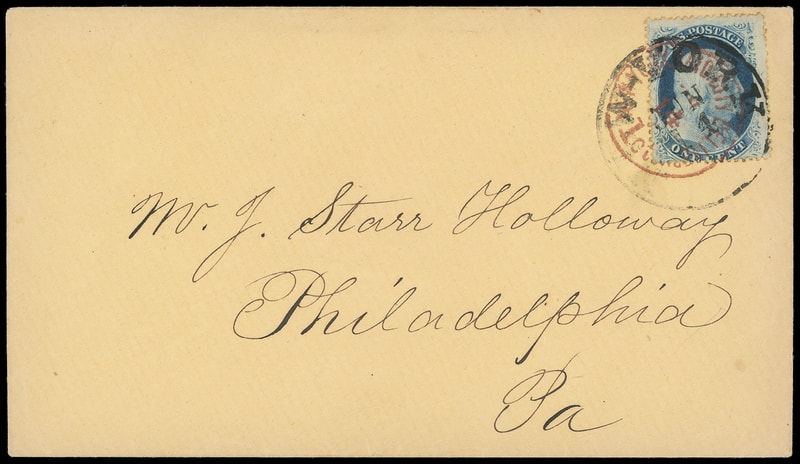 U.S. POSTAGE
ONE CENT
Mr. J. Starr Holloway
Philadelphia
Pa